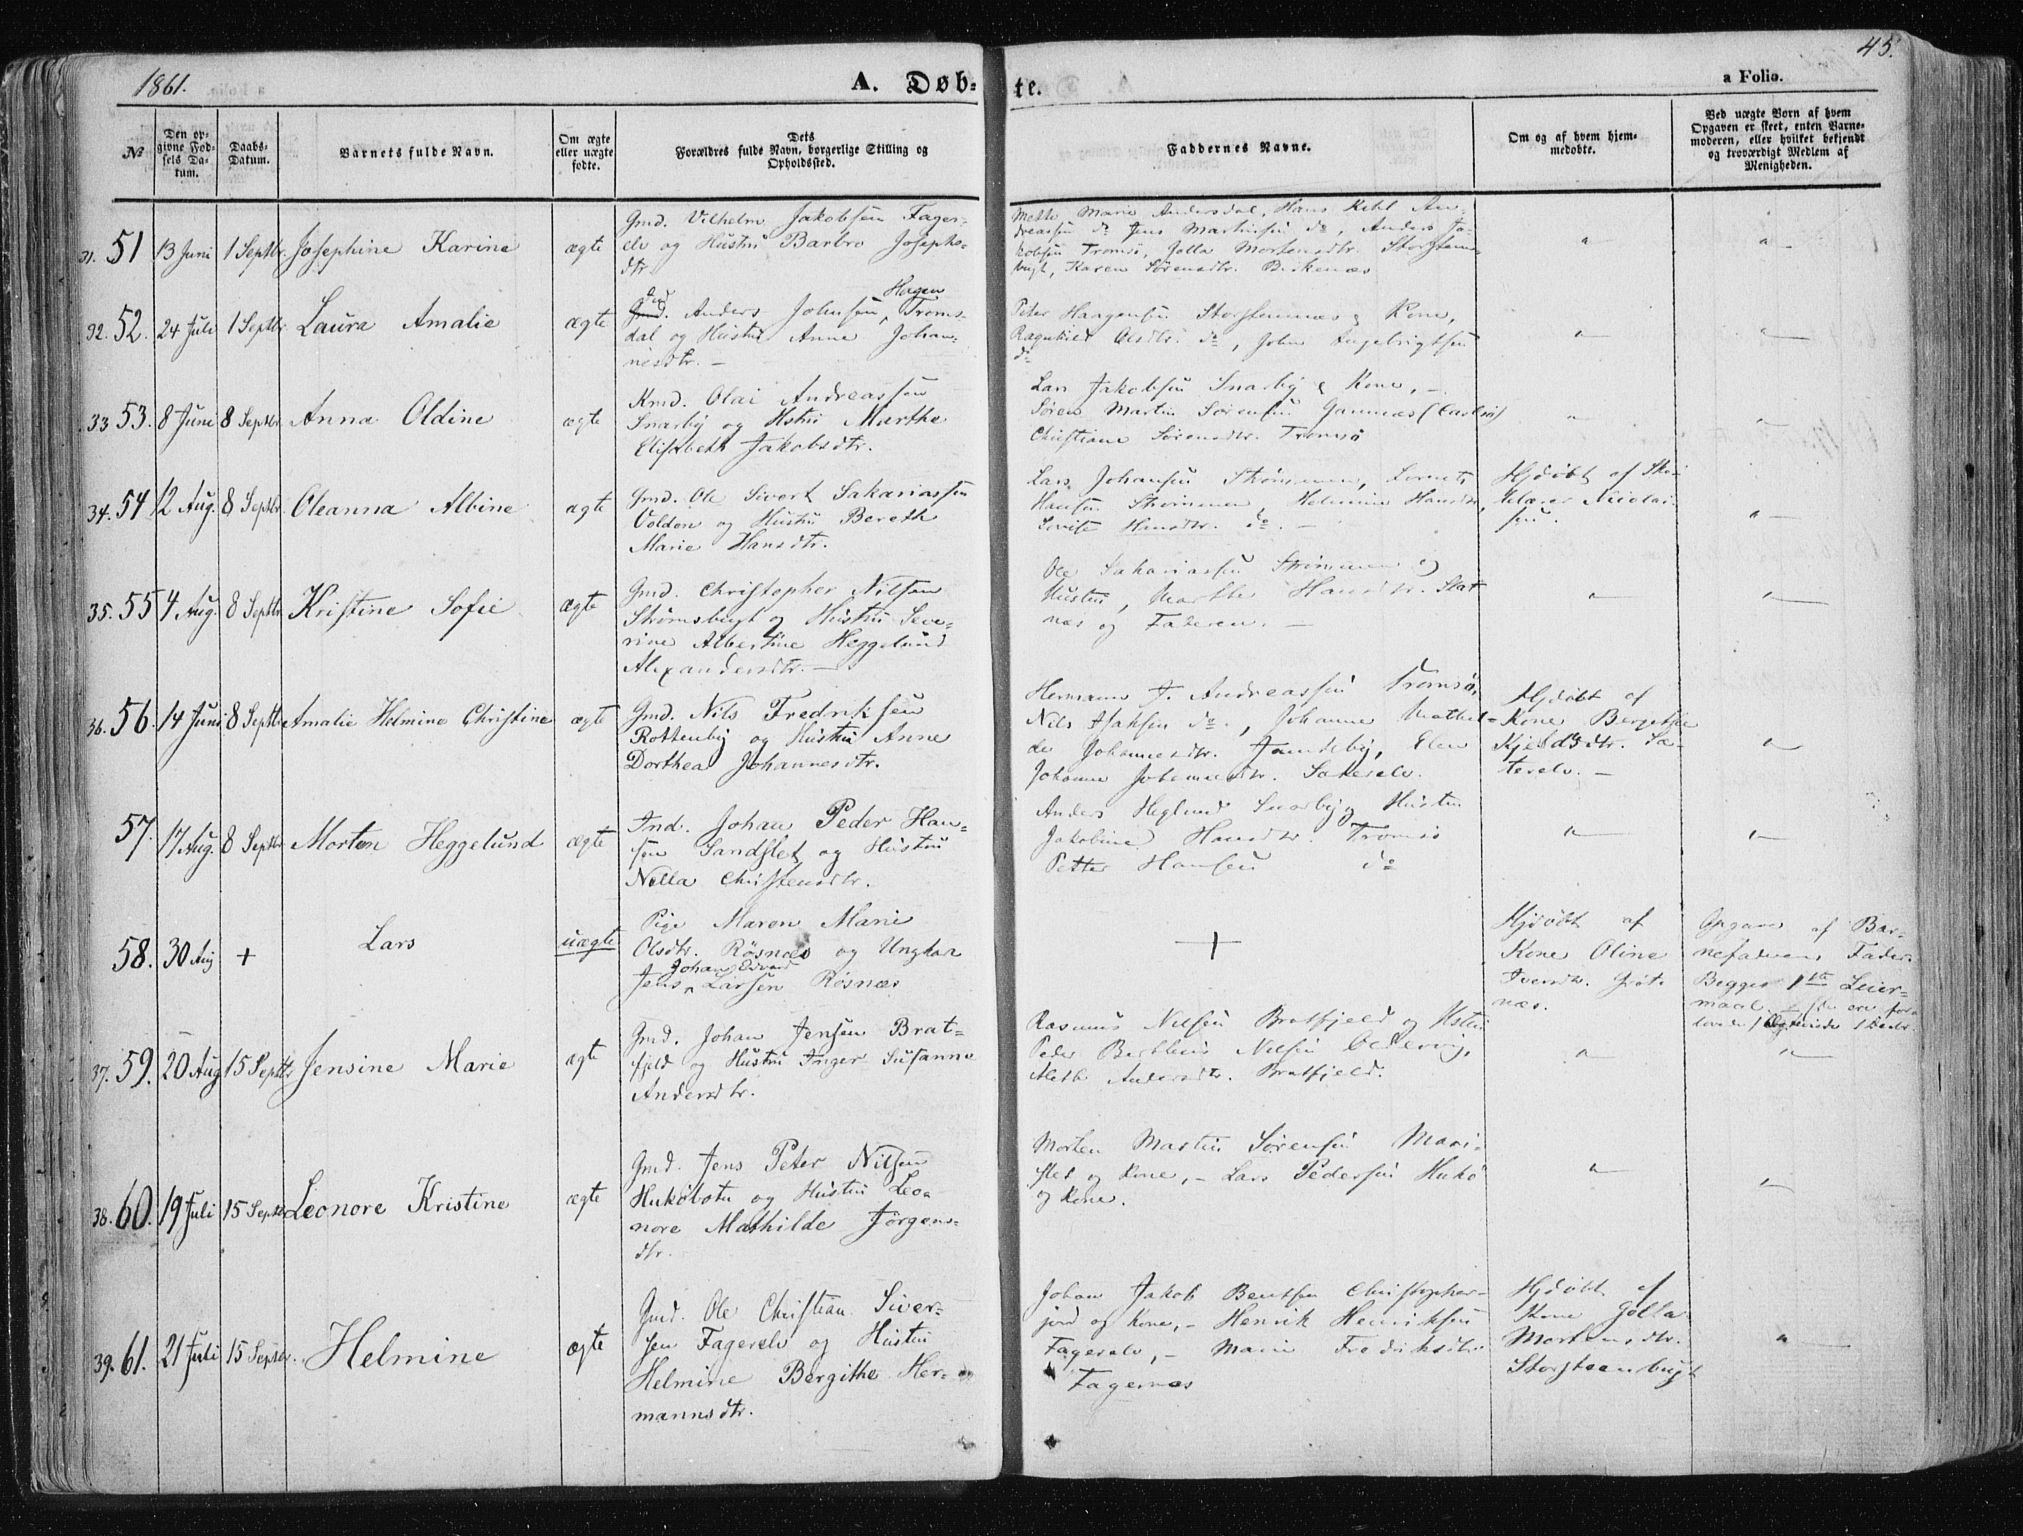 1861.
A. Døb-
te.
45.
a Folio.
№
Den op-
givne Fød-
sels Da-
tum.
Daabs-
Datum.
Barnets fulde Navn.
Om ægte
eller uægte
fødte.
Dets
Forældres fulde Navn, borgerlige Stilling og
Opholdssted.
Faddernes Navne.
Om og af hvem hjem-
medøbte.
Ved uægte Børn af hvem
Opgaven er skeet, enten Barne-
moderen, eller hvilket bekjendt
og troværdigt Medlem af
Menigheden.
31. 51 13 Juni 1 Septbr. Josephine Karine ægte
Gmd. Vilhelm Jakobsen Fager-
elv og Hustru Barbro Josephs-
dtr.
Mette Marie Andersdal, Hans Kihl An-
dreassen do Jens Martinsen do, Anders Ja-
kobsen Tromsö, Jolla Mortensdtr. Storsteens-
bugt, Karen Sörensdtr. Birkenæs
32. 52. 24 Juli 1 Septbr. Laura Amalie ægte
Ind Hagen
Gmd. Anders Johnsen, Troms-
dal og Hustru Anne Johan-
nesdtr. –
Peter Haagensen Storstennæs & Kone,
Ragnhild Olsdtr. do, John Ingebrigtsen
do
33 53. 8 Juni 8 Septbr. Anna Oldine ægte
Kmd. Olai Andreassen
Snarby og Hstru Marthe
Elisabeth Jakobsdtr.
Lars Jakobsen Snarby & Kone, –
Søren Martin Sørensen Gamnæs (Carlsö)
Christiane Sörensdtr. Tromsö
34. 54 12 Aug. 8 Septbr. Oleanna Albine ægte
Gmd. Ole Sivert Sakariassen
Volden og Hustru Bereth
Marie Hansdtr.
Lars Johansen Strømmen, Lornts
Hansen Strømmen, Helmine Hansdtr,
Lovise Hansdtr. do. –
Hjdöbt af Sko-
lelærer Nicolai-
sen.
35. 55 4 Aug. 8 Septbr. Kristine Sofie ægte
Gmd. Christopher Nilsen
Strömsbugt og Hustru Seve-
rine Albertine Heggelund
Alexandersdtr. –
Ole Sakariassen Strömmen og
Hustru, Marthe Hansdtr. Slet
næs og Faderen. –
36. 56. 14 Juni 8 Septbr. Amalie Helmine Christine ægte
Gmd. Nils Fredriksen
Rottenby og Hustru Anne
Dorthea Johannesdtr.
Hermann J. Andreassen Tromsö,
Nils Isaksen do., Johanne Mathil-
de Johannesdtr. Elen
Johanne Johannesdtr. Sæterelv.
Hjdöbt af
Kone Bergithe
Kjeldsdtr. Sæ-
terelv. –
57. 17 Aug. 8 Septbr. Morten Heggelund ægte
Ind. Johan Peder Han-
sen Sandslet og Hustru
Nella Christensdtr.
Anders Heglund Snarby og Hustru
Jakobine Hansdtr. Tromsö
Petter Hansen do
58. 30 Aug + Lars uægte
Pige Maren Marie
Olsdtr. Rösnæs og Ungkar
Johan Edvard
Jens Larsen Rösnæs
+
Hjdöbt af
Kone Oline
Iversdtr. Gröt-
næs.
Opgave af Bar-
nefaderens Fader.
Begges 1ste Leier-
maal
37. 59. 20 Aug 15 Septbr Jensine Marie ægte
Gmd. Johan Jensen Brat-
fjeld og Hustru Inger Susanna
Andersdtr.
Rasmus Nilsen Bratfjeld og Hstru
Peder Berthius Nilsen
Aleth Andersdtr. Bratfjeld.
38. 60. 19 Juli 15 Septbr Leonore Kristine ægte
Gmd. Jens Peter Nilsen
Huköbotn og Hustru Leo-
nore Mathilde Jörgens-
dtr.
Morten Martin Sörensen Mari-
slet og Kone, – Lars Pedersen Hukö
og Kone.
39. 61. 21 Juli 15 Septbr. Helmine ægte
Gmd. Ole Christian Siver-
sen Fagerelv og Hustru
Helmine Bergithe Her-
mannsdtr.
Johan Jakob Bentsen Christopher-
jord og Kone, – Henrik Henriksen
Fagerelv, – Marie Fredriksdtr
Fagernæs
Hjdöbt af
Kone Jolla
Mortensdtr.
Storsteenbugt